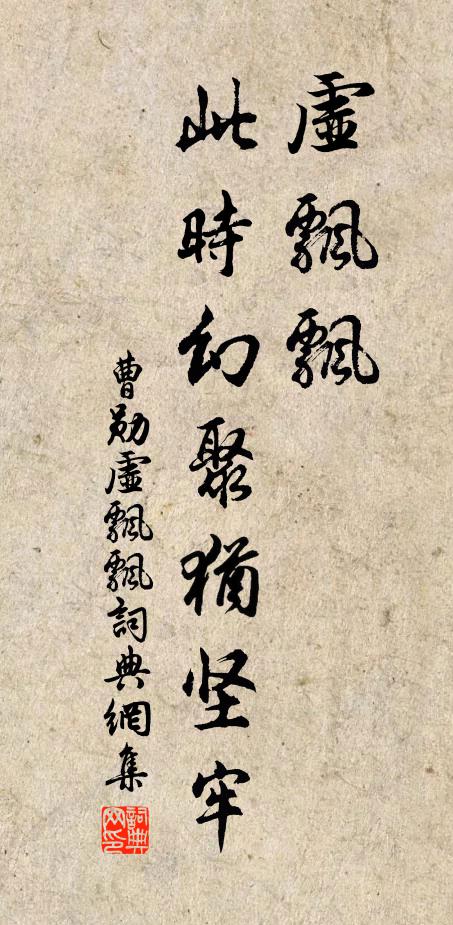 虛飄飄
此時幻聚猶坚牢
曹勛虛飄飄詞典網集
詞典网印